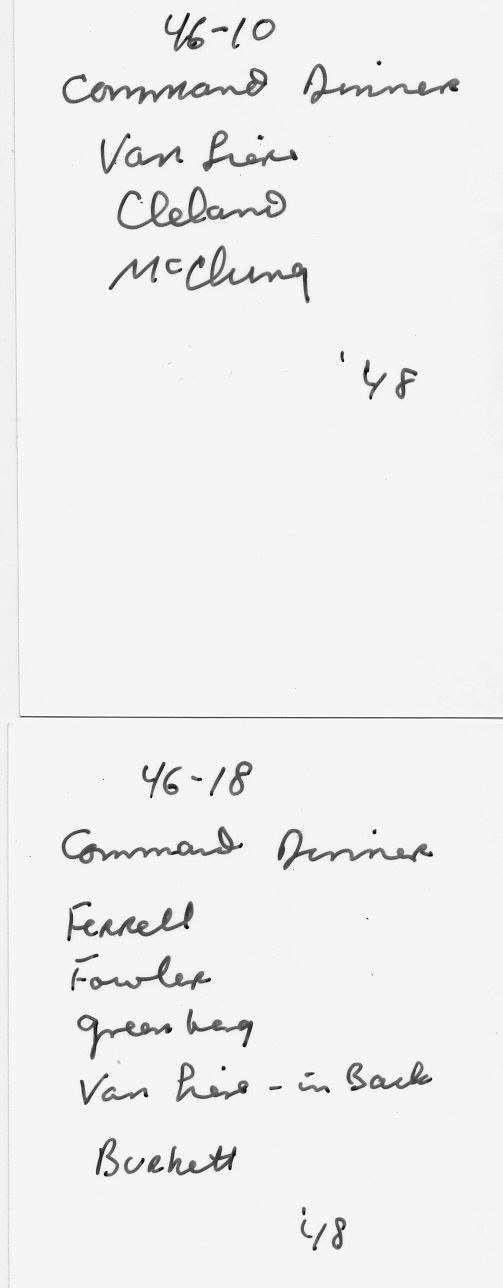 46-10
Command Dinner
Van Liere
Cleland
McClung
'48
46-18
Command Dinner
Ferrell
Fowler
Greenberg
Van Liere - in Back
Burkett
'48